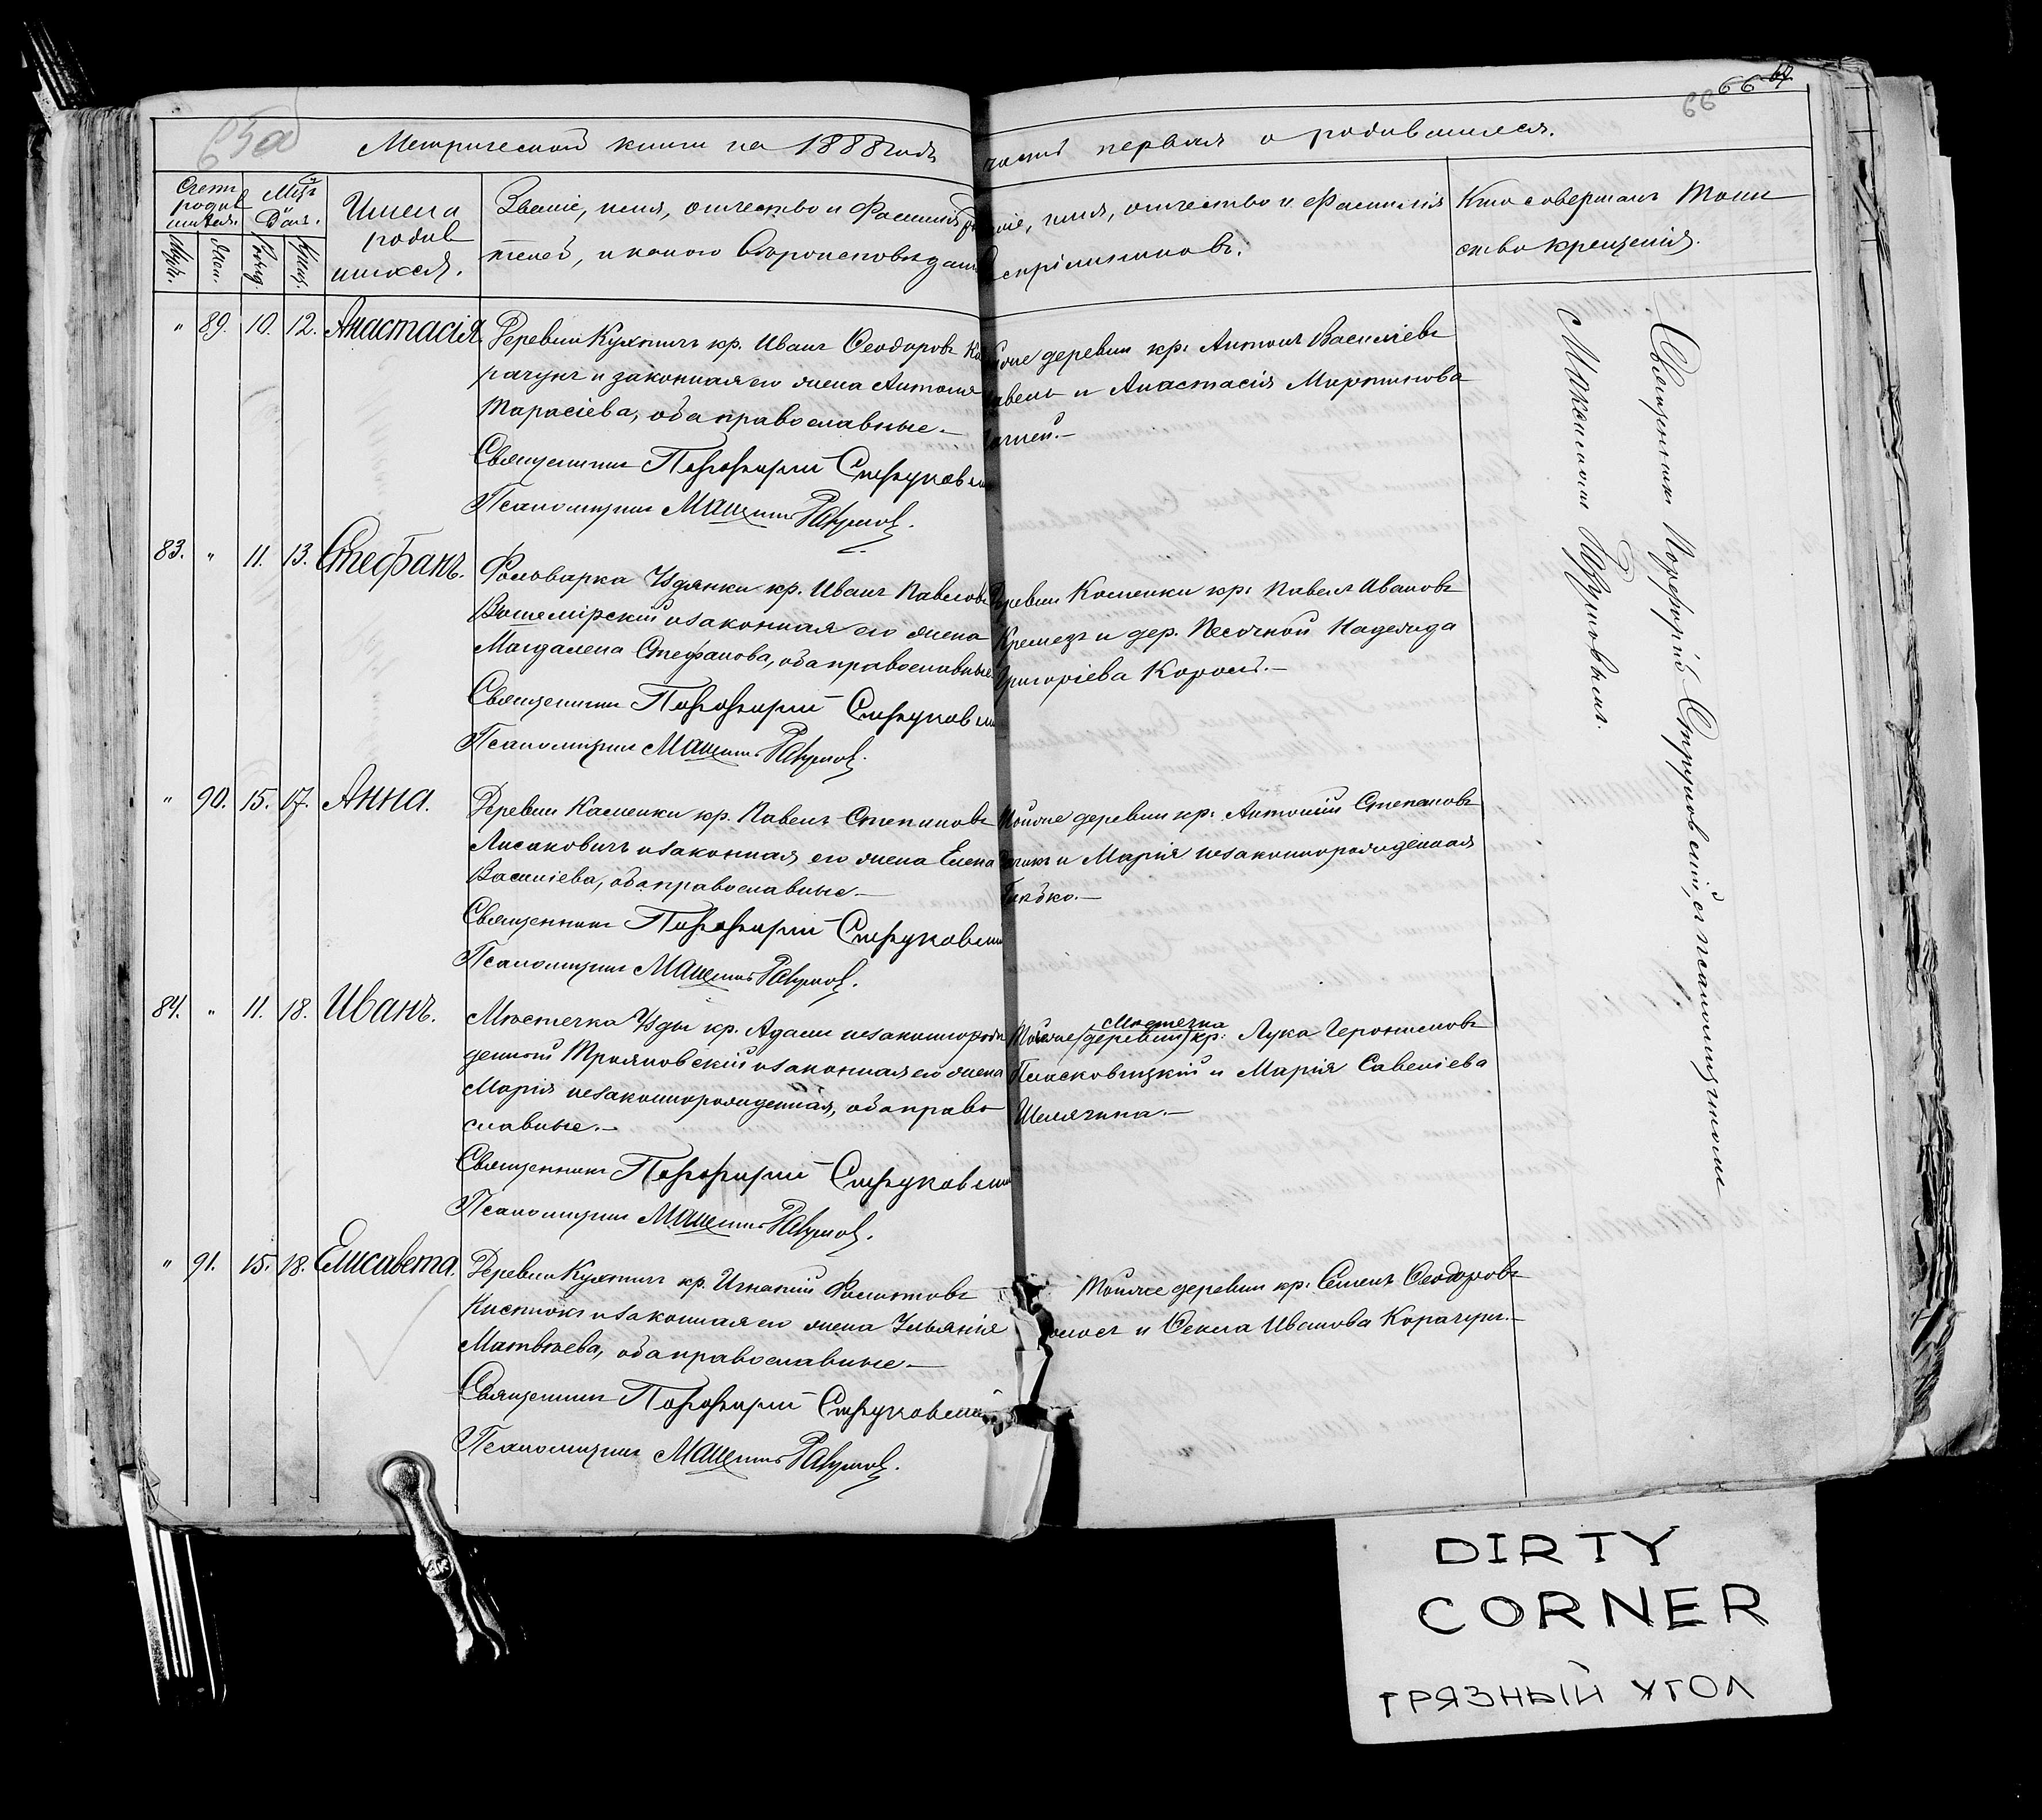 65об
66 66
Метрической книги на 1888 годъ часть первая о родившихся.
Счетъ родив шихся.
Муж. Жен.
Мцъ и День.
Рожд. Крещ.
Имена
родив
шихся.
Званіе, имя, отчество и фамилія роди
телей, и какого вѣроисповѣданія
Званіе, имя, отчество и фамилія
воспріемниковъ.
Кто совершалъ таин
ство крещенія.
" 89. 10. 12. Анастасія.
Деревни Кухтичъ кр. Иванъ Ѳеодоровъ Ка
рачунъ и законная его жена Антонія
Тарасіева, оба православные.—
Священникъ Порфирій Струковскій
Псаломщикъ Максимъ
тойже деревни кр. Антонъ Василіевъ
и Анастасія Мартинова
83. " 11. 13. Стефанъ.
Фольварка Уздянки кр. Иванъ Павловъ
и законная его жена
Магдалена Стефанова, оба православные.
Священникъ Порфирій Струковскій
Псаломщикъ Максимъ
Деревни Каменки кр. Павелъ Ивановъ
Кремезъ и дер. Песочной Надежда
Григоріева Король.—
" 90. 15. 17. Анна.
Деревни Каменки кр. Павелъ Степановъ
Лисаковичъ и законная его жена Елена
Василіева, оба православные.—
Священникъ Порфирій Струковскій
Псаломщикъ Максимъ
Тойже деревни кр. Антоній Степановъ
и Марія незаконнорожденная
84. " 11. 18. Иванъ.
Мѣстечка Узды кр. Адамъ незаконнорож
денный Трояновскій и законная его жена
Марія незаконнорожденная, оба право
славные.—
Священникъ Порфирій Струковскій
Псаломщикъ Максимъ
Тойже (деревни) мѣстечка кр. Лука Іеронимовъ
Плосковицкій и Марія Савеліева
" 91. 15. 18. Елисавета.
Деревни Кухтичъ кр. Игнатій
и законная его жена Ульянія
Матвѣева, оба православные.—
Священникъ Порфирій Струковскій
Псаломщикъ Максимъ
Тойже деревни кр. Семенъ Ѳеодоровъ
и Ѳекла Иванова Карачунъ.—
Священникъ Порфирій Струковскій, съ псаломщикомъ
Максимомъ
DIRTY
CORNER
ГРЯЗНЫЙ УГОЛ